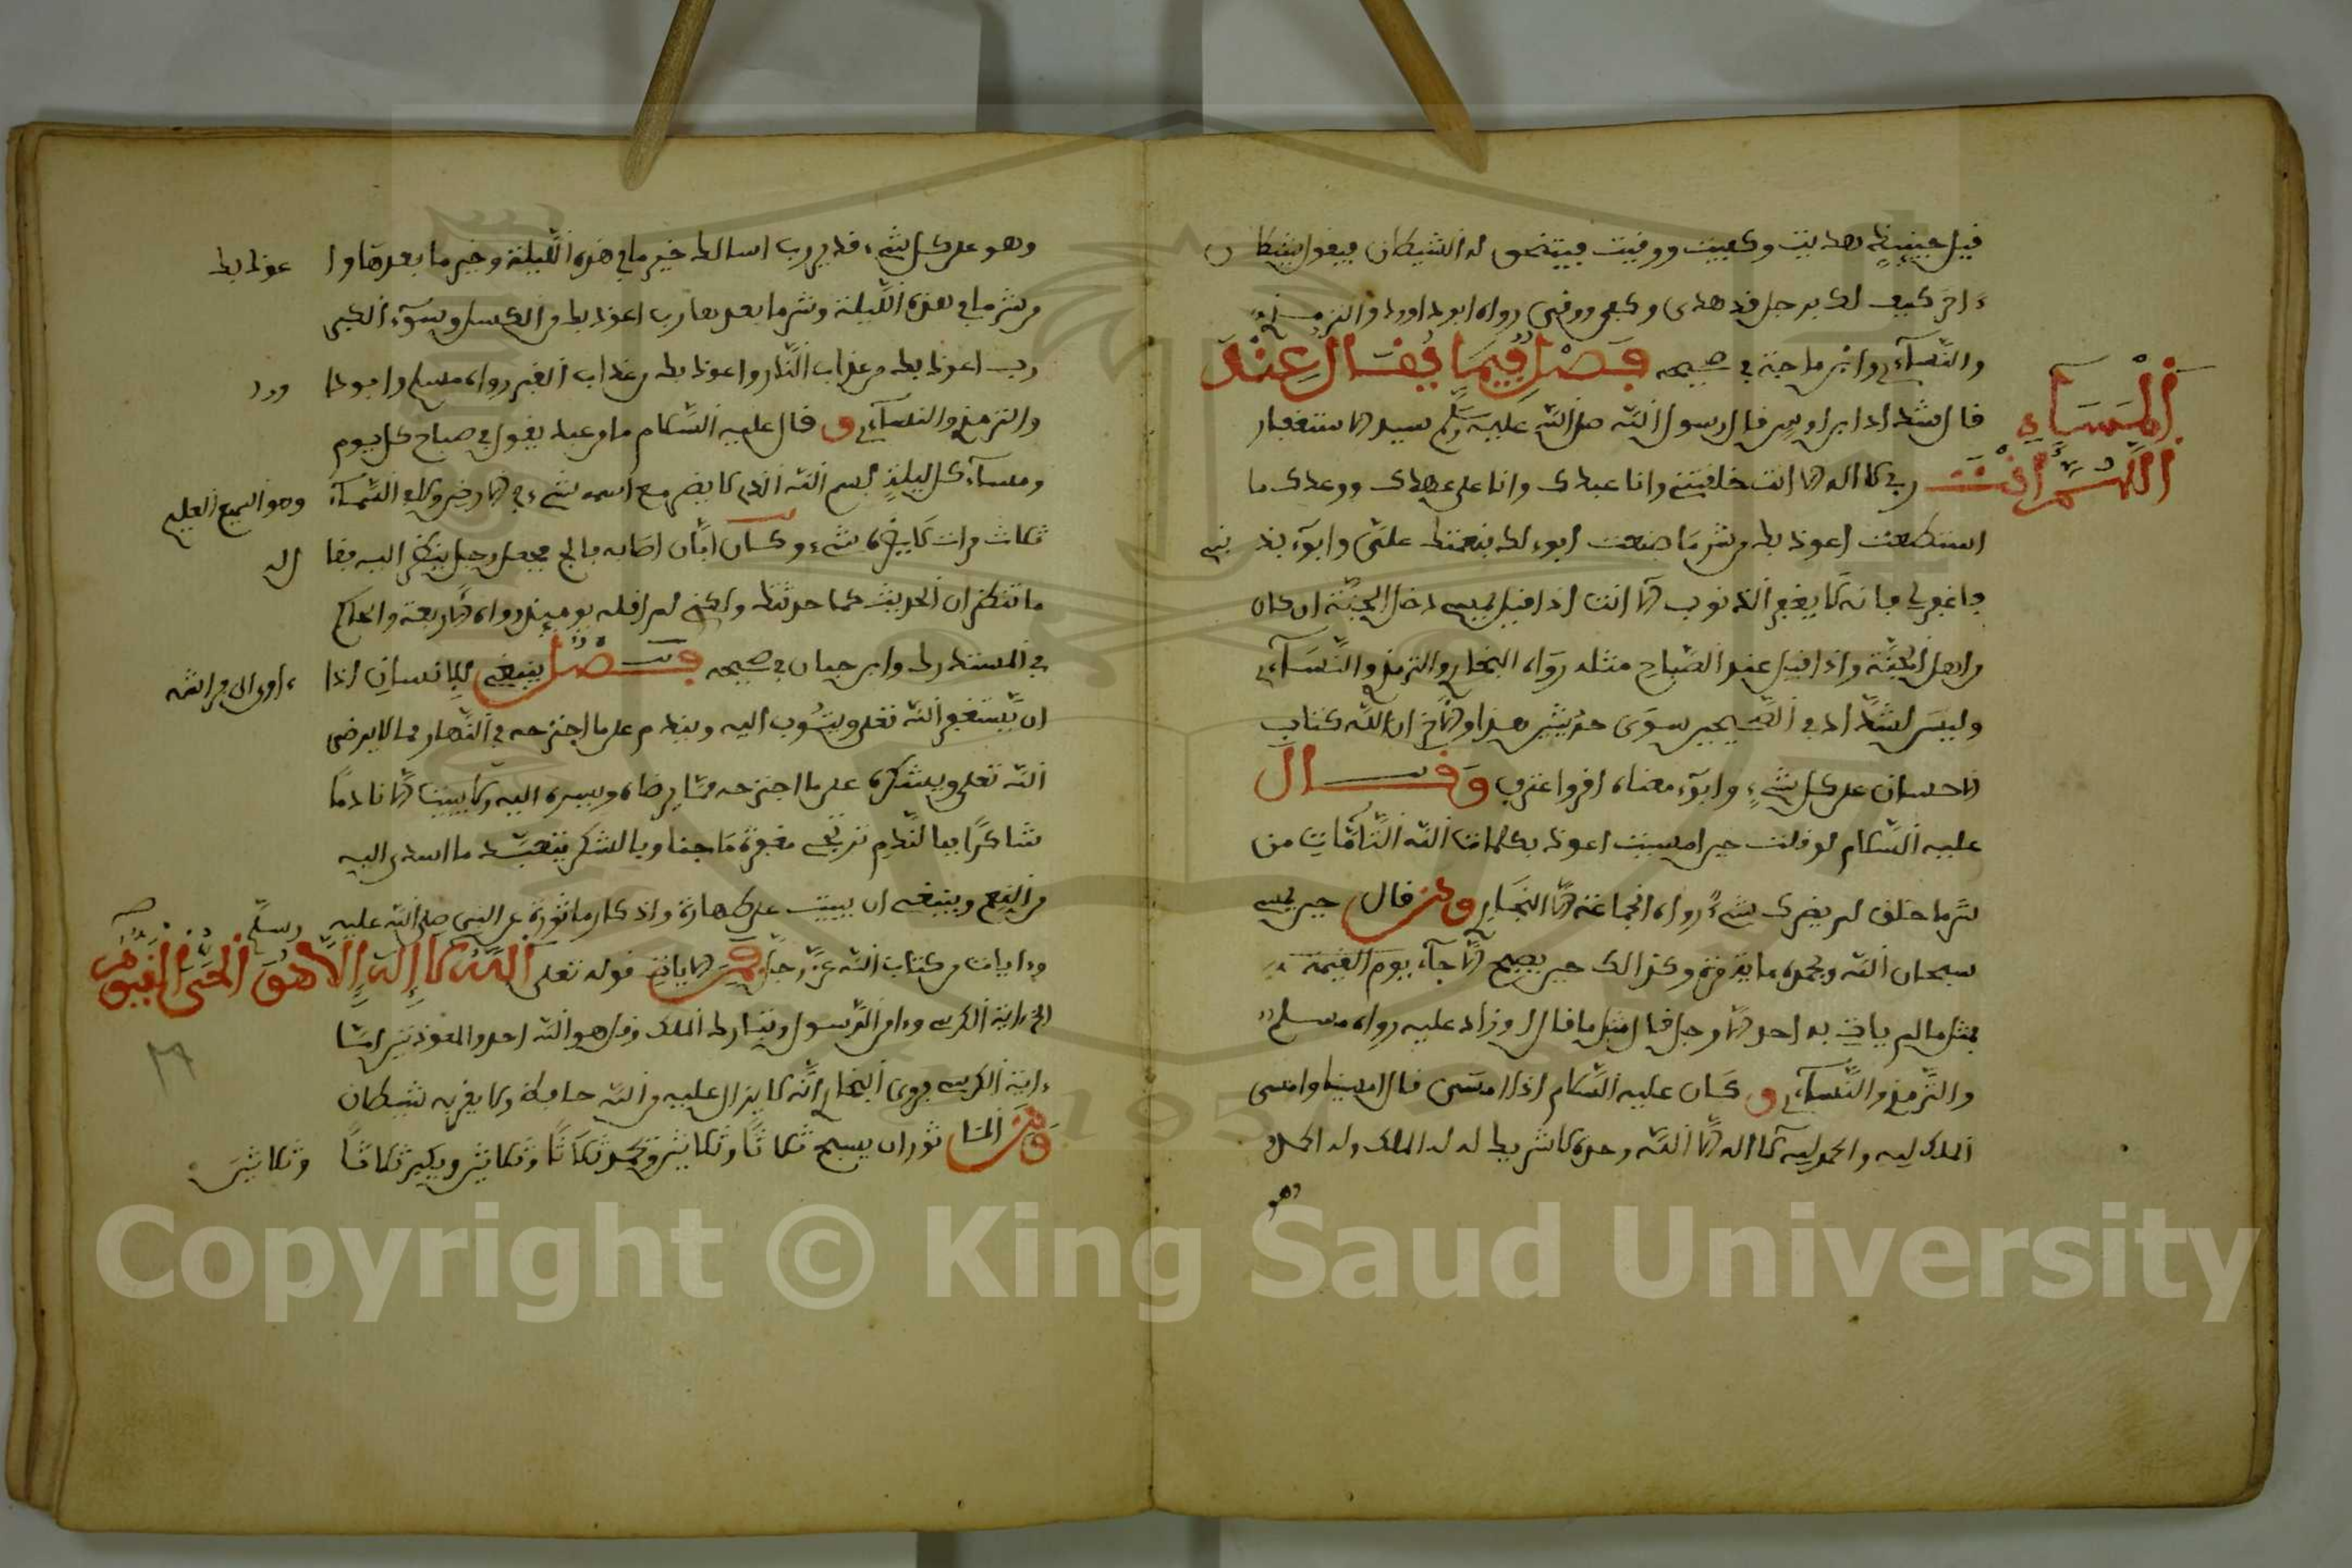 قيل حينيذ هديت وكفيت ووقيت فيتنحى له الشيطان فيقول شيطان
ءاخر كيف لك برجل قد هدى وكفى ووقى رواه ابو داوود والترمذي
والنسآءي وابن ماجة في صحيحه فصل فيما يقال عند المسآء
قال شداد ابن اوس قال رسول الله صلى الله عليه وسلم سيد الاستغفار اللهم انت
ربي لا اله الا انت خلقتني وانا عبدك وانا على عهدك ووعدك ما
استطعت اعوذ بك من شر ما صنعت ابوء لك بنعمتك علي وابوء بذنبي
فاغفر لي فانه لا يغفر الذنوب الا انت اذا قيل يمسي دخل الجنة او كان
من اهل الجنة واذا قيل عند الصباح مثله رواه البخاري والترمذي والنسآءي
وليس لشداد في الصحيحين سوى حديثين هذا والاخر ان الله كتب
الاحسان على كل شيء وابوء معناه اقر واعترف وقال
عليه السلام لو قلت حين امسيت اعوذ بكلمات الله التامات من
شر ما خلق لم يضرك شيء رواه الجماعة الا البخاري ومن قال حين يمسي
سبحان الله وبحمده ماية مرة وكذالك حين يصبح الا جآء يوم القيمة
بمثل ما لم يات به احد الا رجل قال مثل ما قال او زاد عليه رواه مسلم
والترمذي والنسآءي و كان عليه السلام اذا امسى قال امسينا وامسى
الملك لله والحمد لله لا اله الا الله وحده لا شريك له له الملك وله الحمد
وهو
وهو على كل شيء قدير رب اسالك خير ما في هذه الليلة وخير ما بعدها واعوذ بك
من شر ما في هذه الليلة وشر ما بعدها رب اعوذ بك من الكسل وسوء الكبر
رب اعوذ بك من عذاب النار واعوذ بك من عذاب القبر رواه مسلم وابو داوود
والترمذي والنسآءي و قال عليه السلام ما من عبد يقول في صباح كل يوم
ومسآء كل ليلة بسم الله الذي لا يضر مع اسمه شيء في الارض ولا في السمآء وهو السميع العليم
ثلاث مرات لا يضره شيء وكان ابان اصابه فالج فجعل رجل ينظر اليه فقال له
ما تنظر ان الحديث كما حدثتك ولكني لم اقله يوميذ رواه الاربعة والحاكم
في المستدرك وابن حبان في صحيحه فصل ينبغي للانسان اذا اوى الى فراشه
ان يستغفر الله تعلى ويتوب اليه ويندم على ما اجترحه في النهار مما لا يرضى
الله تعلى ويشكره على ما اجترحه مما يرضاه ويسره اليه ولا يبيت الا نادما
شاكرا فبالندم ترتجى مغفرة ما جنا وبالشكر يتقيد ما اسدى اليه
من النعم وينبغي ان يبيت على طهارة واذكار ماثورة عن النبي صلى الله عليه وسلم
وءايات من كتاب الله عز وجل فمن الايات قوله تعلى الله لا اله الا هو الحي القيوم
الخ ءاية الكرسي وءامن الرسول وتبارك الملك وقل هو الله احد والمعوذتين اما
ءاية الكرسي فروى البخاري انه لا يزال عليه من الله حافظ ولا يقربه شيطان
ومن الماثور ان يسبح ثلاثا وثلاثين ويحمد ثلاثا وثلاثين ويكبر ثلاثا وثلاثين
Copyright © King Saud University
1957